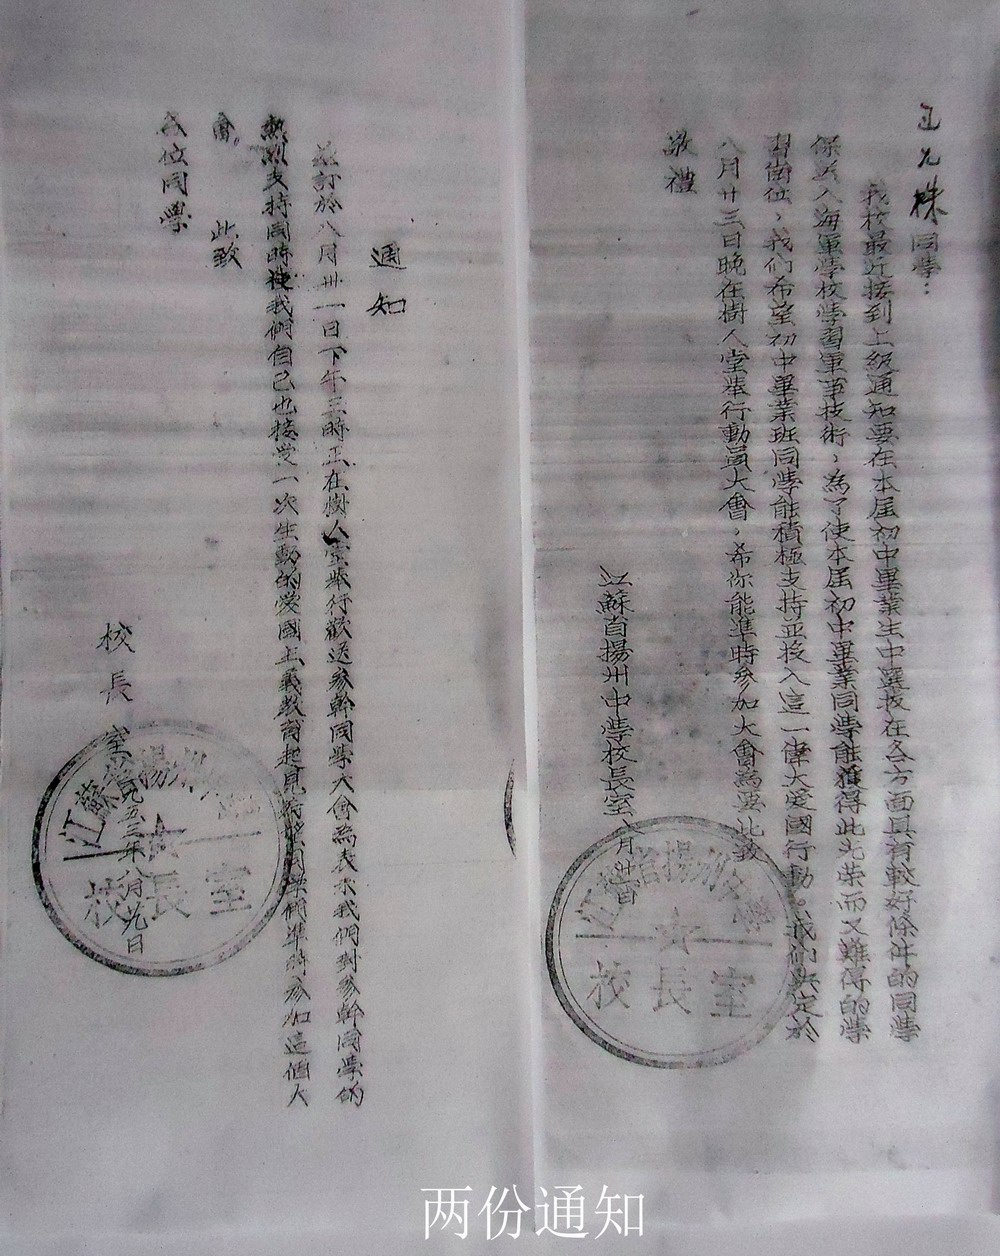 同學：
我校最近接到上級通知要在本届初中畢業生中選拔在各方面具有較好條件的同學
保送入海軍學校學習軍事技術，為了使本届初中畢業同學能獲得此光荣而又難得的學
習崗位，我们希望初中畢業班同學能積極支持並投入這一偉大爱國行動。我们决定於
八月廿三日晚在樹人堂举行動員大會，希你能準時參加大會為要此致
敬禮
江蘇省揚州中學校長室
校長室
通知
兹訂於八月卅一日下午三時正在樹人堂举行歡送参幹同學大會為表示我們對参幹同學的
熱烈支持同時使我們自己也接受一次生動的爱國主義教育起見希望同學們準時参加這個大
會。
此致
各位同學
校長室
一九五三年八月 日
校長室
两份通知